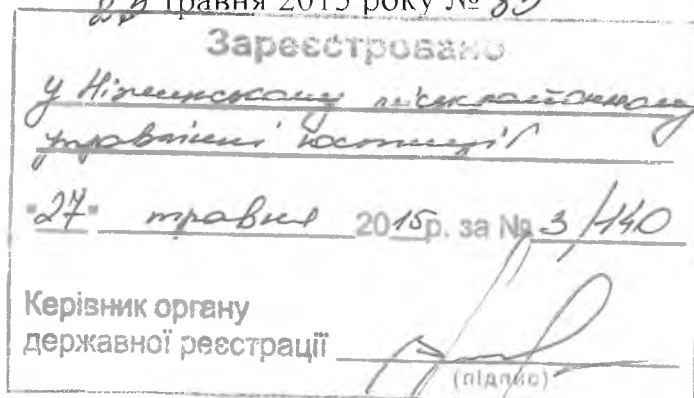 травня 2015 року №
Зареєстровано
у Ніжинському міськрайонному
управлінні юстиції
"27" травня 2015р. за № 3/140
Керівник органу
державної реєстрації
(підпис)